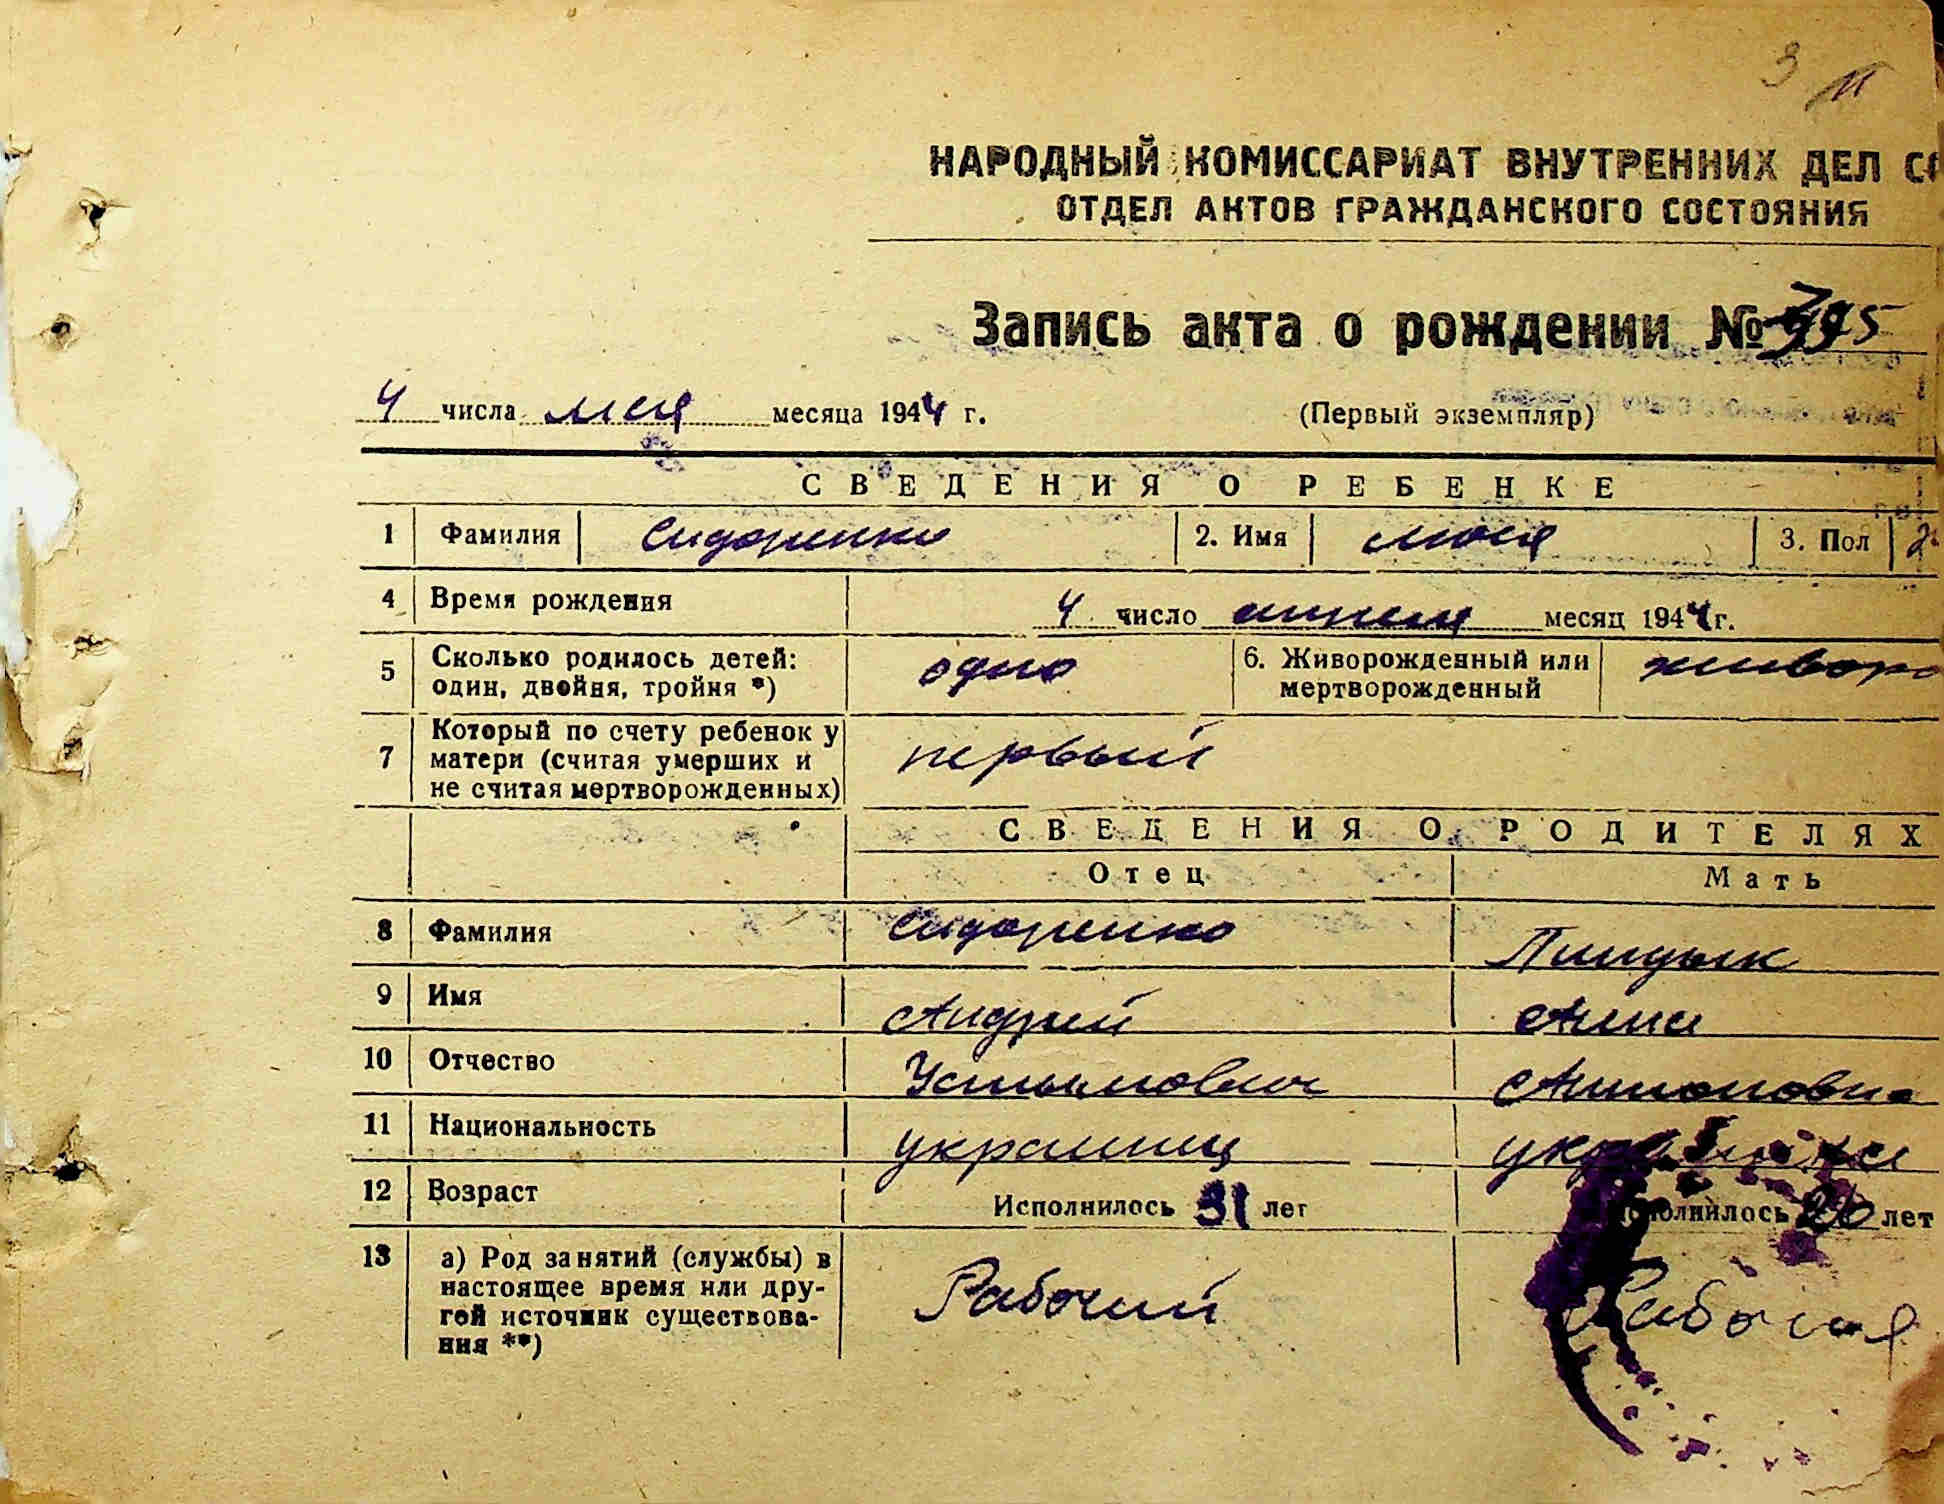 3
НАРОДНЫЙ КОМИССАРИАТ ВНУТРЕННИХ ДЕЛ
ОТДЕЛ АКТОВ ГРАЖДАНСКОГО СОСТОЯНИЯ
Запись акта о рождении №
4 числа мая месяца 1944 г. (Первый экземпляр)
СВЕДЕНИЯ О РЕБЕНКЕ
1 Фамилия Сидоренко 2. Имя Люся 3. Пол
4 Время рождения 4 число апреля месяц 1944 г.
5 Сколько родилось детей: один, двойня, тройня *) одно 6. Живорожденный или мертворожденный живоро
7 Который по счету ребенок у матери (считая умерших и не считая мертворожденных) первый
СВЕДЕНИЯ О РОДИТЕЛЯХ
Отец Мать
8 Фамилия Сидоренко
9 Имя Андрей Анна
10 Отчество Устимович Антоновна
11 Национальность украинц украинка
12 Возраст Исполнилось 31 лет Исполнилось 26 лет
13 а) Род занятий (службы) в настоящее время или другой источник существования **) Рабочий Рабочая